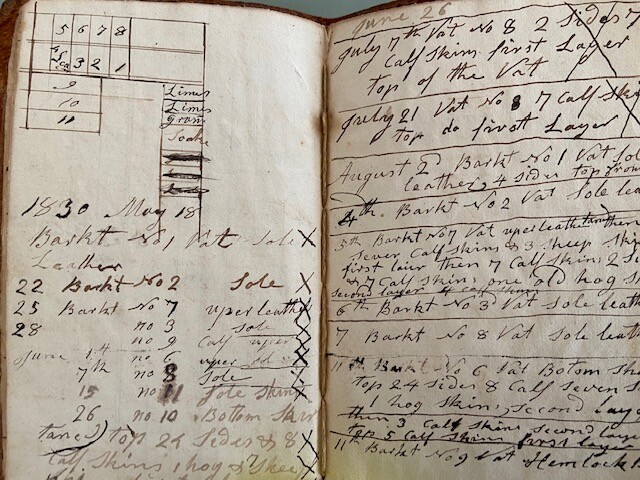 5 6 7 8
3 2 1
9
10
11
Limes
Limes
Soak
1830 May 18
Barkt No 1 Vat Sole X
Leather
22 Barkt No 2 Sole X
25 Barkt No 7 uper leather X
28 no 3 Sole X
no 9 Calf uper X
June 14 no 6 uper X
7th no 8 Sole X
15 no 11 Sole Skins X
26 no 10 Bottom Skir
taned top 24 Sides & 8 X
Calf Skins 1 hog &
June 26
July 7th Vat No 8 2 Sides 7
Calf Skins first Layer
top of the Vat
July 21 Vat No 8 7 Calf Ski
top do first Layer
August 2d Barkt No 1 Vat Sol
leather, 4 sides top from
4th. Barkt No 2 Vat Sole lea
5th Barkt No 7 Vat uper leather then
sever Calf Skins & 3 Sheep Skin
first lair then 7 Calf Skins 2 Si
& 7 Calf Skins one old hog S
Second layer
6th Barkt No 3 Vat Sole leath
7 Barkt No 8 Vat Sole leath
11th Barkt No 6 Vat Botom Sk
top 24 Sides 8 Calf Seven S
1 hog Skin, Second laye
then 3 Calf Skins Second lay
top 5 Calf Skins first layer
11th Barkt No 9 Vat Hemlock B